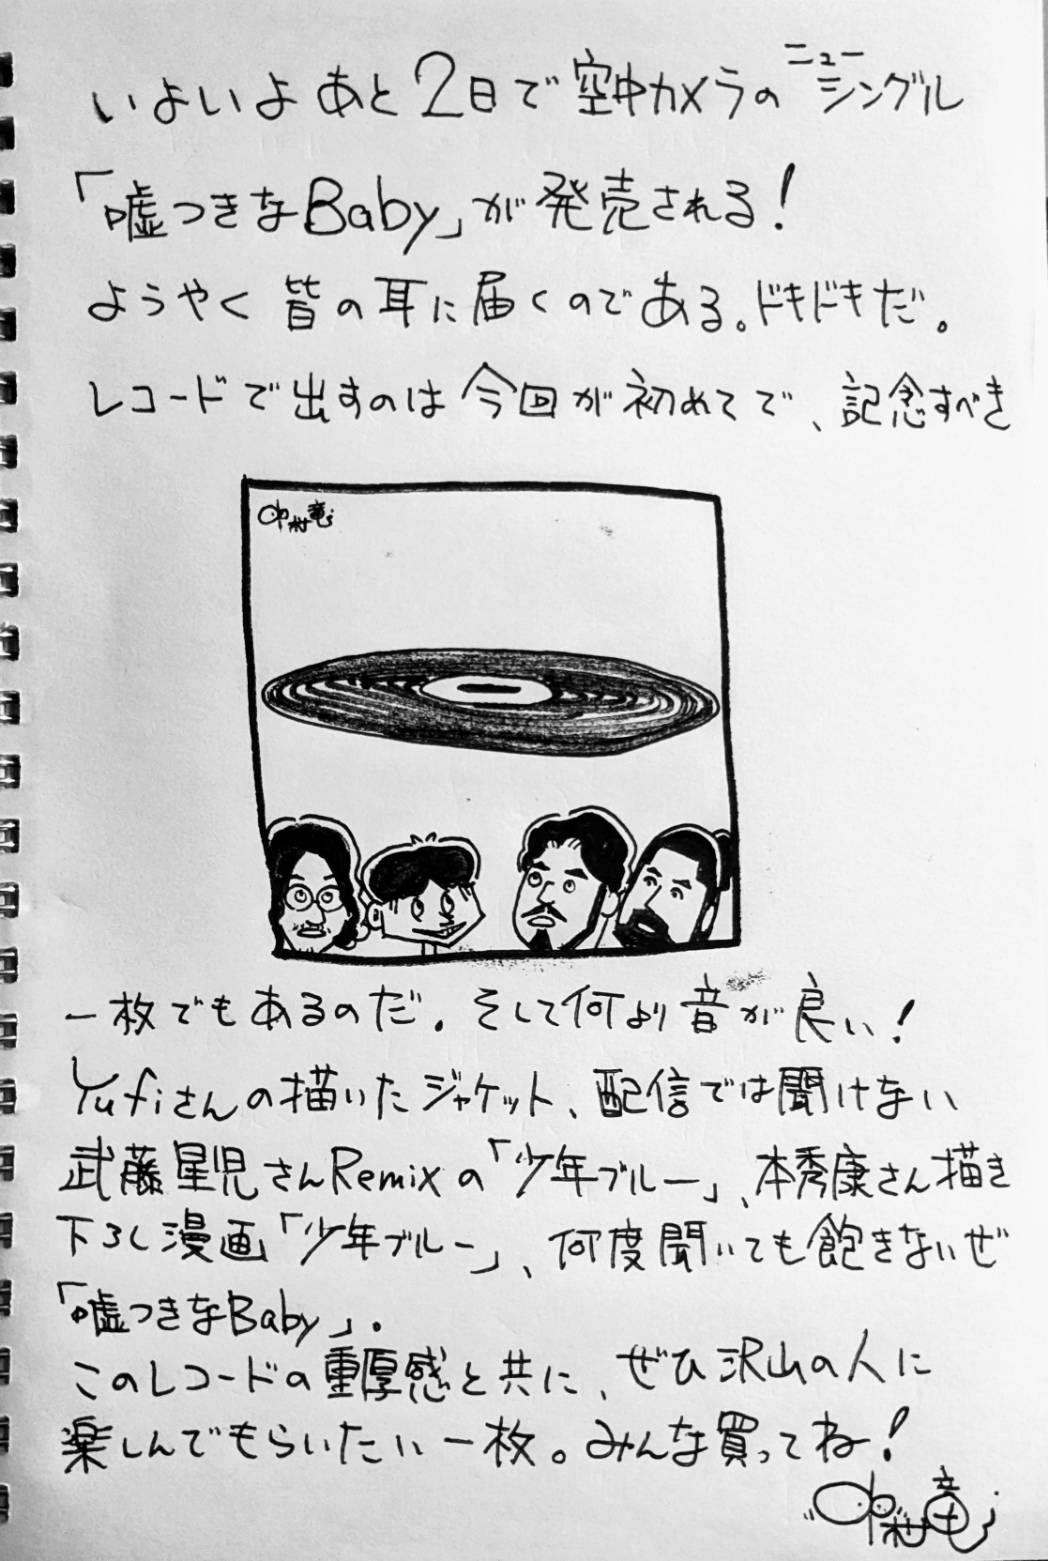 いよいよあと2日で空中カメラのニューシングル
「嘘つきなBaby」が発売される！
ようやく皆の耳に届くのである。ドキドキだ。
レコードで出すのは今回が初めてで、記念すべき
中村竜
一枚でもあるのだ。そして何より音が良い！
Yufiさんの描いたジャケット、配信では聞けない
武藤星児さんRemixの「少年ブルー」、本秀康さん描き
下ろし漫画「少年ブルー」、何度聞いても飽きないぜ
「嘘つきなBaby」。
このレコードの重厚感と共に、ぜひ沢山の人に
楽しんでもらいたい一枚。みんな買ってね！
中村竜